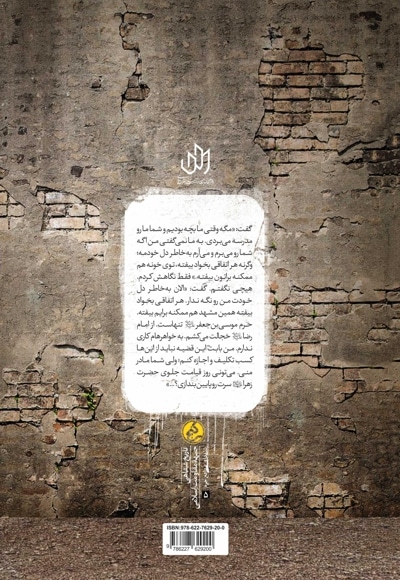 گفت: «مگه وقتی ما بچه بودیم و شما ما رو
مدرسه می‌بردی، به ما نمی‌گفتی من اگه
شما رو می‌برم و می‌آرم به‌خاطر دل خودمه؛
وگرنه هر اتفاقی بخواد بیفته، توی خونه هم
ممکنه براتون بیفته.» فقط نگاهش کردم.
هیچی نگفتم. گفت: «الان به‌خاطر دل
خودت من رو نگه ندار. هر اتفاقی بخواد
بیفته همین مشهد هم ممکنه برایم بیفته.
حرم موسی‌بن‌جعفر تنهاست. از امام
رضا خجالت می‌کشم. به خواهرهام کاری
ندارم. من بابت این قضیه نباید از این‌ها
کسب تکلیف و اجازه کنم؛ ولی شما مادر
منی. می‌تونی روز قیامت جلوی حضرت
زهرا سرت رو پایین بندازی؟...»
۵
ISBN: 978-622-7629-20-0
9 786227 629200